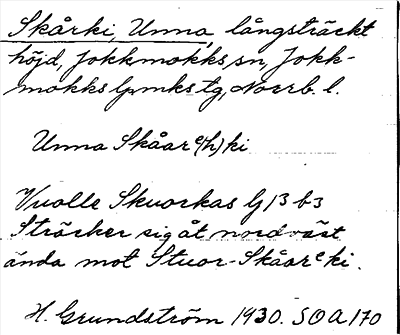 Skårki, Unna, långsträckt
höjd, Jokkmokks sn, Jokk-
mokks lpmks tg, Norrb. l.
Unna Skåarᵉ(h)ki
Vuolle Skuorkas G 13 b3
Sträcker sig åt nordväst
ända mot Stuor-Skåarᵉki.
H. Grundström 1930. SOA 170